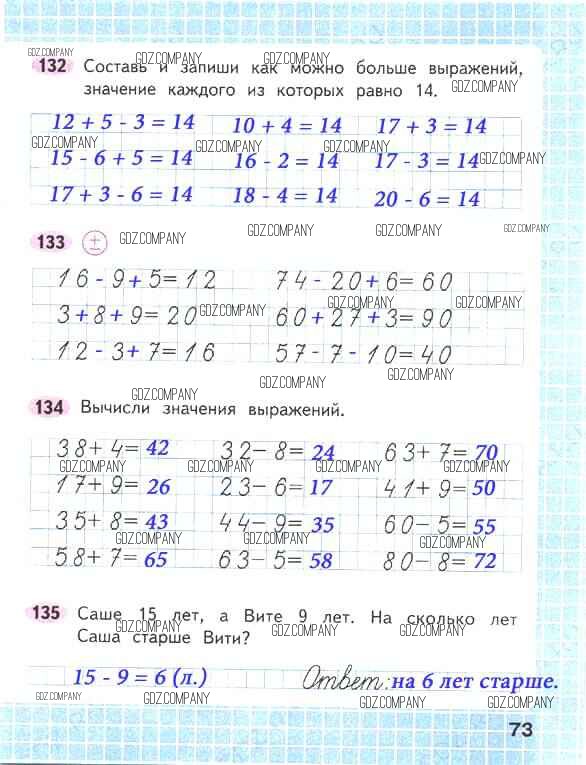 GDZ.COMPANY GDZ.COMPANY GDZ.COMPANY
132 Составь и запиши как можно больше выражений,
значение каждого из которых равно 14. GDZ.COMPANY
12 + 5 - 3 = 14 10 + 4 = 14 17 + 3 = 14
GDZ.COMPANY GDZ.COMPANY GDZ.COMPANY GDZ.COMPANY
15 - 6 + 5 = 14 16 - 2 = 14 17 - 3 = 14
17 + 3 - 6 = 14 18 - 4 = 14 20 - 6 = 14
133 ± GDZ.COMPANY GDZ.COMPANY GDZ.COMPANY GDZ.COMPANY
16 - 9 + 5 = 12 74 - 20 + 6 = 60
GDZ.COMPANY GDZ.COMPANY GDZ.COMPANY
3 + 8 + 9 = 20 60 + 27 + 3 = 90
12 - 3 + 7 = 16 57 - 7 - 10 = 40
GDZ.COMPANY GDZ.COMPANY GDZ.COMPANY
134 Вычисли значения выражений.
38 + 4 = 42 32 - 8 = 24 63 + 7 = 70
GDZ.COMPANY GDZ.COMPANY GDZ.COMPANY GDZ.COMPANY
17 + 9 = 26 23 - 6 = 17 41 + 9 = 50
35 + 8 = 43 44 - 9 = 35 60 - 5 = 55
GDZ.COMPANY GDZ.COMPANY GDZ.COMPANY
58 + 7 = 65 63 - 5 = 58 80 - 8 = 72
135 Саше 15 лет, а Вите 9 лет. На сколько лет
GDZ.COMPANY GDZ.COMPANY GDZ.COMPANY
Саша старше Вити?
15 - 9 = 6 (л.) Ответ: на 6 лет старше.
GDZ.COMPANY GDZ.COMPANY GDZ.COMPANY GDZ.COMPANY
73